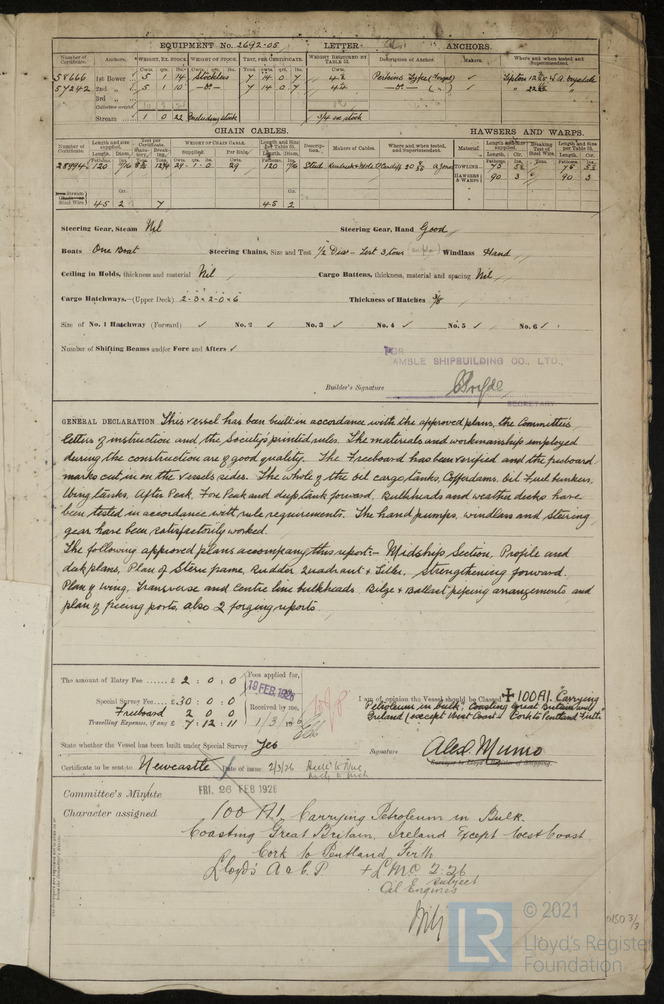 EQUIPMENT No. 2692.05 LETTER ANCHORS.
Number of Certificate. Anchors. WEIGHT, EX. STOCK. WEIGHT OF STOCK. TEST, PER CERTIFICATE. WEIGHT REQUIRED BY TABLE 31. Description of Anchor. Makers. Where and when tested and Superintendent.
58666 1st Bower 5 1 14 Stockless 7 14 0 7
57242 2nd 5 1 10 -do- 7 14 0 7 -do-
3rd
Collective weight
Stream 1 0 22 Excluding stock ex stock
CHAIN CABLES. HAWSERS AND WARPS.
Number of Certificate. Length and size supplied. Test per Certificate. WEIGHT OF CHAIN CABLE. Length and Size per Table 31. Description. Makers of Cables. Where and when tested, and Superintendent. Material. Length and size supplied. Breaking Test of Steel Wire. Length and Size per Table 31.
120 29.1.0 29 120 Stud
TOWLINE 75 75
HAWSERS & WARPS 90 3 90 3
Steel Wire 45 2 7 45 2
Steering Gear, Steam Nil Steering Gear, Hand Good
Boats One Boat Steering Chains, Size and Test 1/2 Dia - Test 3 tons Windlass Hand
Ceiling in Holds, thickness and material Nil Cargo Battens, thickness, material and spacing Nil
Cargo Hatchways.—(Upper Deck) 2-0 x 2-0 x 6 Thickness of Hatches 3/8
Size of No. 1 Hatchway (Forward) ✓ No. 2 ✓ No. 3 ✓ No. 4 ✓ No. 5 ✓ No. 6 ✓
Number of Shifting Beams and/or Fore and Afters ✓
FOR
AMBLE SHIPBUILDING CO., LTD.,
Builder's Signature
SECRETARY.
GENERAL DECLARATION This vessel has been built in accordance with the approved plans, the Committee's
letters of instruction and the Society's printed rules. The materials and workmanship employed
during the construction are of good quality. The Freeboard has been verified and the freeboard
marks cut in on the vessels sides. The whole of the oil cargo tanks, Cofferdams, Oil Fuel bunkers,
Wing tanks, After Peak, Fore Peak and deep tank forward, Bulkheads and weather decks have
been tested in accordance with rule requirements. The hand pumps, windlass and steering
gear have been satisfactorily worked.
The following approved plans accompany this report:- Midship Section, Profile and
deck plans, Plan of Stern frame, Rudder Quadrant & Tiller, Strengthening forward.
Plan of Wing, Transverse and Centre line bulkheads. Bilge & Ballast piping arrangements and
plan of freeing ports, also 2 forging reports
The amount of Entry Fee ...... £ 2 : 0 : 0
Fees applied for,
19 FEB. 1926
Special Survey Fee... £ 30 : 0 : 0
Received by me,
Freeboard 2 0 0
1/3/26
Travelling Expenses, if any £ 7 : 12 : 11
I am of opinion the Vessel should be Classed ✠ 100 A1. Carrying
Petroleum in bulk, Coasting Great Britain and
Ireland (except West Coast - Cork to Pentland Firth"
State whether the Vessel has been built under Special Survey Yes
Signature Alexd Munro
Surveyor to Lloyd's Register of Shipping.
Certificate to be sent to Newcastle Date of issue 2/3/26
Committee's Minute FRI. 26 FEB 1926
Character assigned 100 A1. Carrying Petroleum in Bulk.
Coasting Great Britain, Ireland Except West Coast
Cork to Pentland Firth
Lloyd's A & C P + LMC 2.26
subject
Oil Engines
0150 3/3
LR © 2021
Lloyd's Register
Foundation